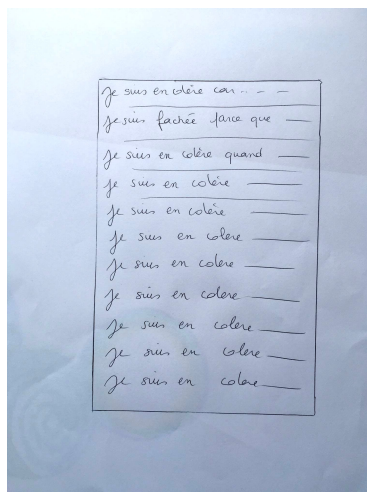 Je suis en colère car .. - -
Je suis fachée parce que ___
Je suis en colère quand ___
Je suis en colère ___
Je suis en colère ___
Je suis en colere ___
Je suis en colere ___
Je suis en colere ___
Je suis en colere ___
Je suis en colere ___
Je suis en colere ___